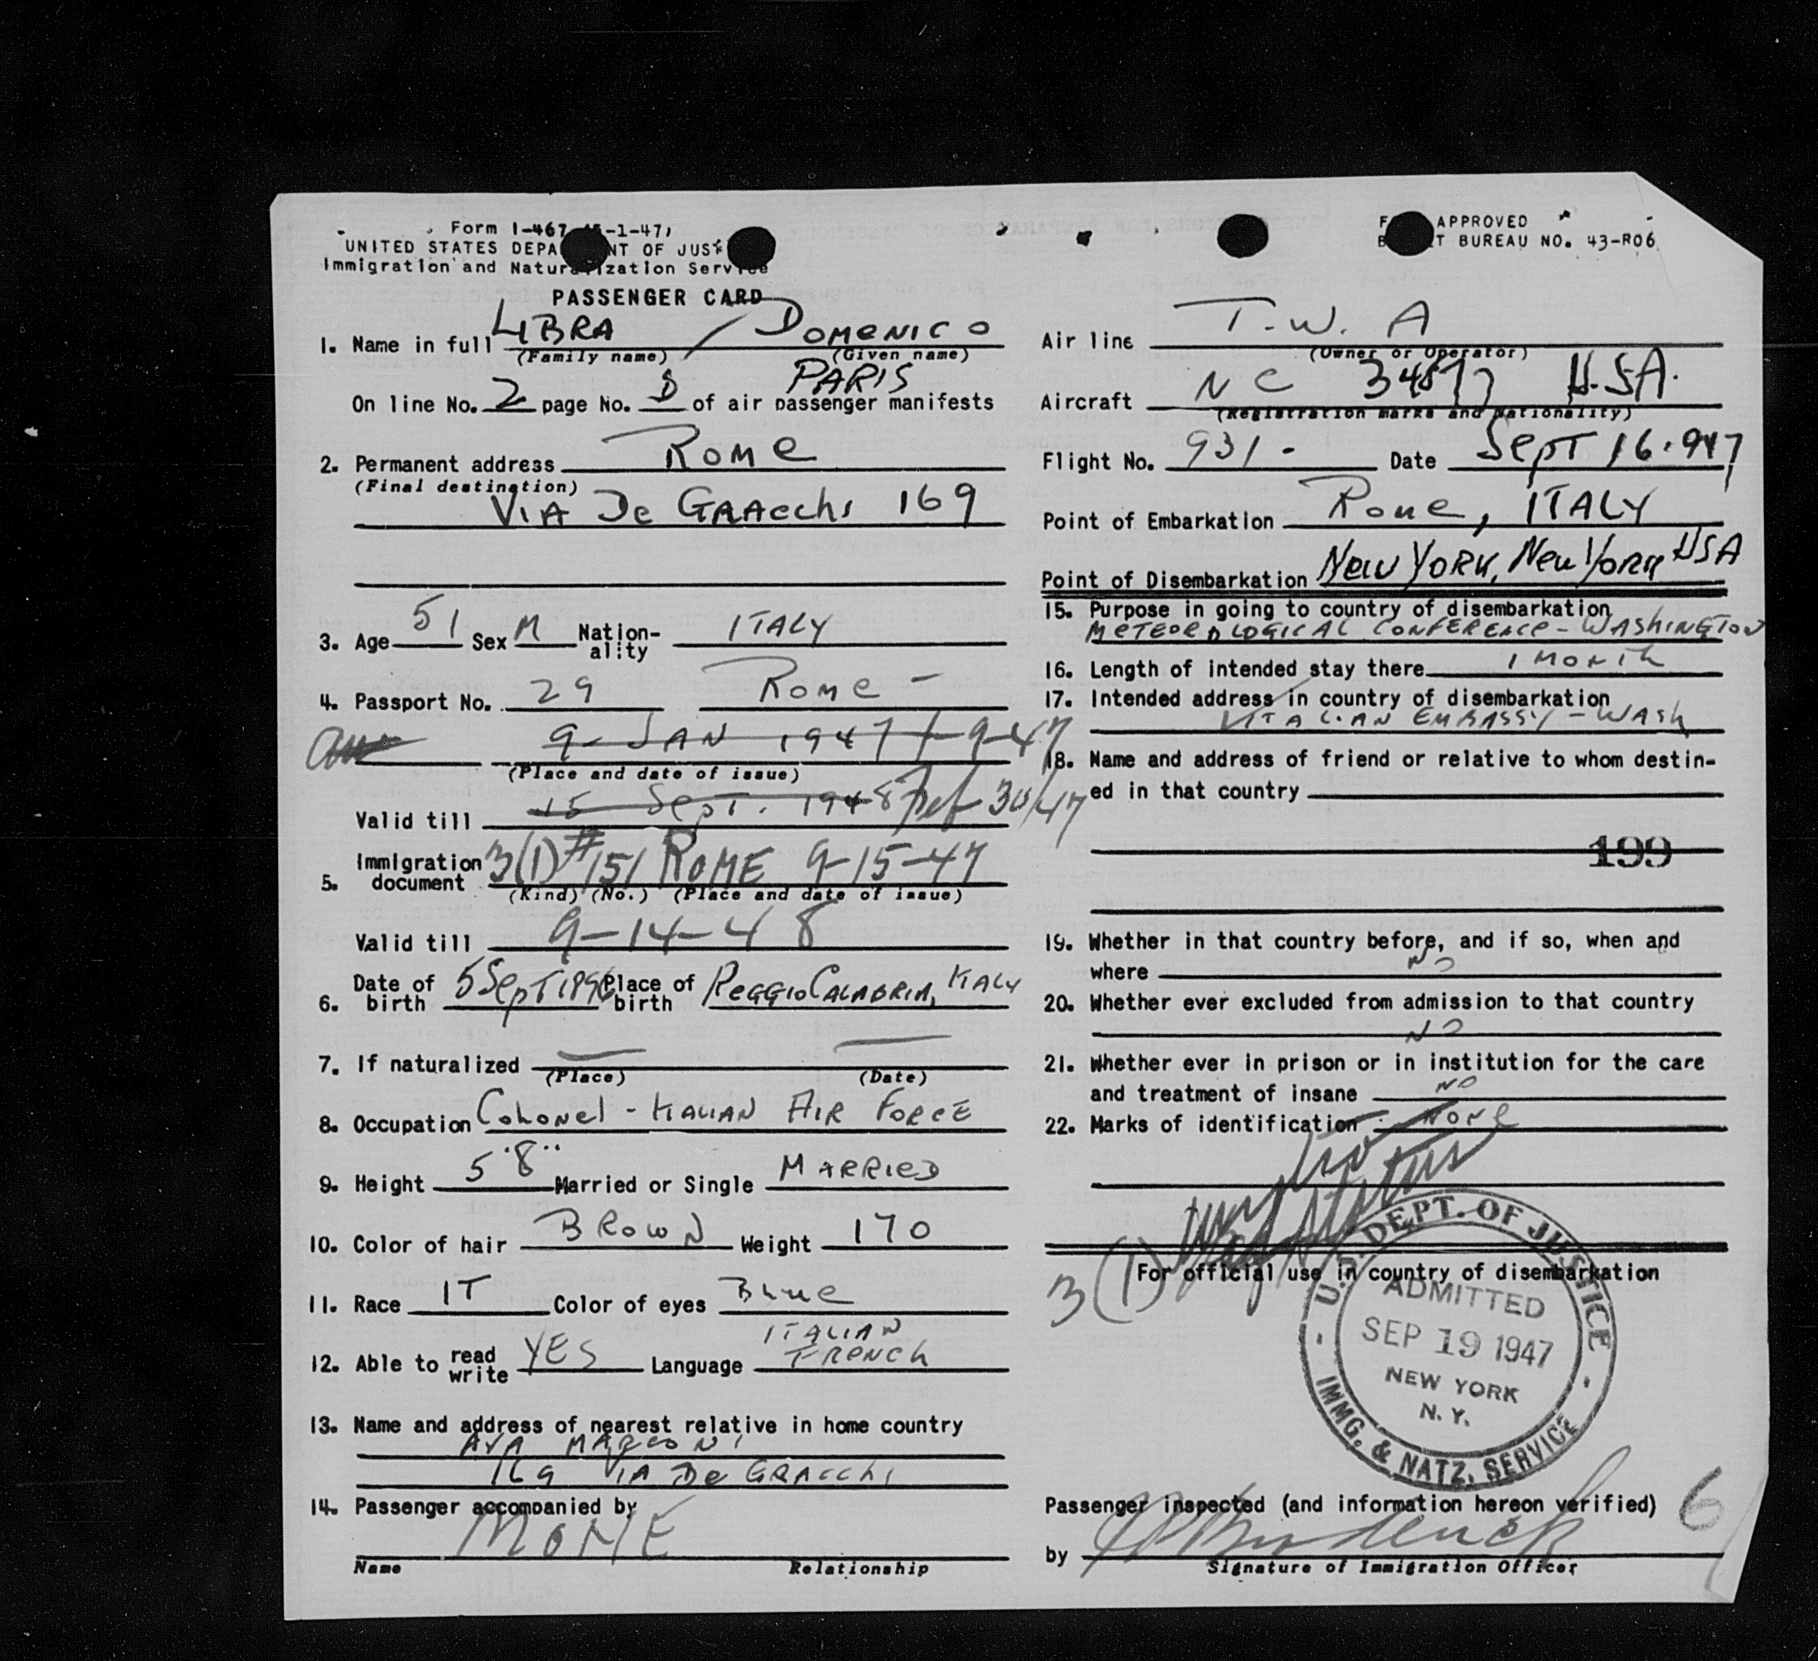 Form I-467 -1-47)
UNITED STATES DEPA NT OF JUS
Immigration and Naturalization Service
PASSENGER CARD
FORM APPROVED
BUREAU NO. 43-R06
1. Name in full LIBRA / DOMENICO
(Family name) (Given name)
PARIS
On line No. 2 page No. D of air passenger manifests
2. Permanent address ROME
(Final destination)
VIA De GRAecchi 169
3. Age 51 Sex M Nation-ality ITALY
4. Passport No. 29 Rome -
9 - JAN 1947 1-9-47
(Place and date of issue)
Valid till 15 Sept. 1948 30/47
5. Immigration document 3(1) #151 ROME 9-15-47
(Kind) (No.) (Place and date of issue)
Valid till 9-14-48
6. Date of birth 5 SepT 1896 Place of birth ReGGIO CALABRIA, ITALY
7. If naturalized — —
(Place) (Date)
8. Occupation Colonel - ITALIAN AIR FORCE
9. Height 5'8" Married or Single MARRIED
10. Color of hair BROWN Weight 170
11. Race IT Color of eyes Blue
12. Able to read write YES Language ITALIAN FRENCH
13. Name and address of nearest relative in home country
MARCONI
169 VIA De GRACChi
14. Passenger accompanied by
NONE
Name Relationship
Air line T.W.A
(Owner or Operator)
Aircraft NC 34577 U.SA.
(Registration marks and Nationality)
Flight No. 931 - Date SepT 16.947
Point of Embarkation Rome, ITALY
Point of Disembarkation New YORK, New York USA
15. Purpose in going to country of disembarkation
METEOROLOGICAL CONFERENCE - WASHINGTON
16. Length of intended stay there 1 MONTH
17. Intended address in country of disembarkation
ITALIAN EMBASSY - WASH
18. Name and address of friend or relative to whom destin-
ed in that country
199
19. Whether in that country before, and if so, when and
where NO
20. Whether ever excluded from admission to that country
NO
21. Whether ever in prison or in institution for the care
and treatment of insane NO
22. Marks of identification NONE
3(1)
For official use in country of disembarkation
U.S. DEPT. OF JUSTICE
ADMITTED
SEP 19 1947
NEW YORK
N.Y.
- IMMG. & NATZ. SERVICE -
Passenger inspected (and information hereon verified) 6
by
Signature of Immigration Officer